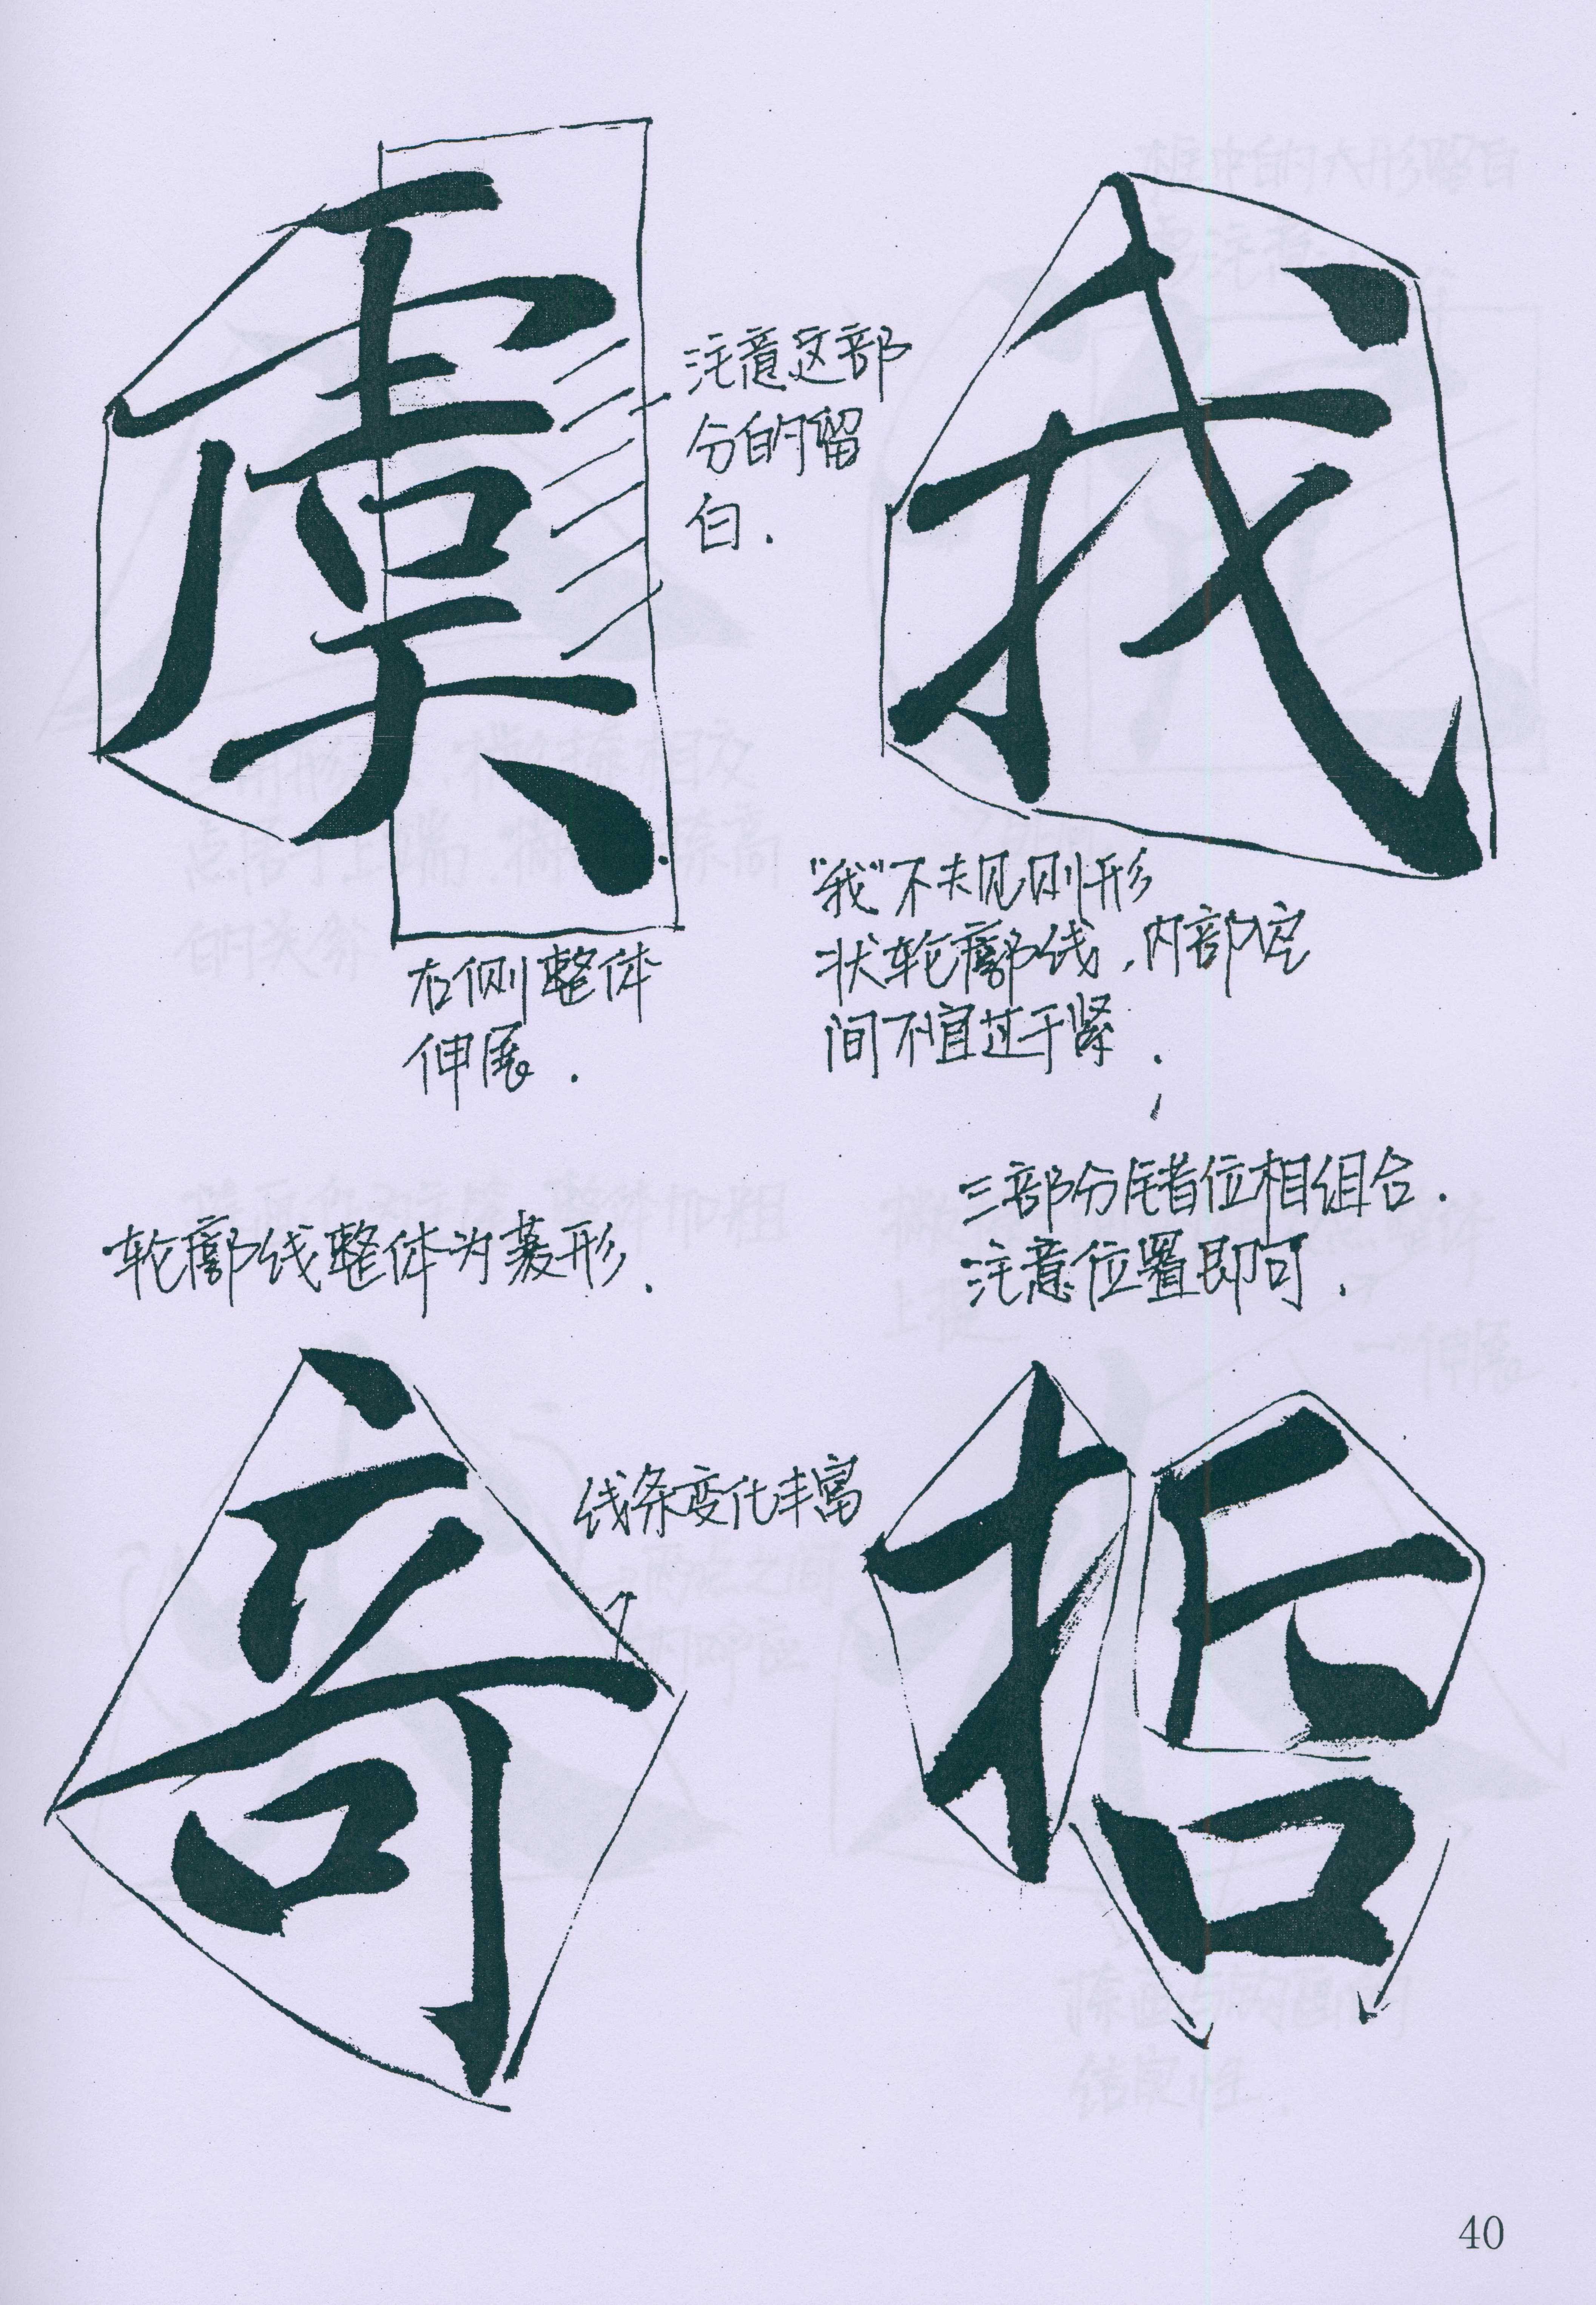 虞
我
注意这部
分的留
白.
右侧整体
伸展.
"我"不夫见则形
状轮廓线,内部空
间不宜过于紧.
轮廓线整体为菱形.
三部分错位相组合.
注意位置即可.
奇
哲
线条变化丰富
40